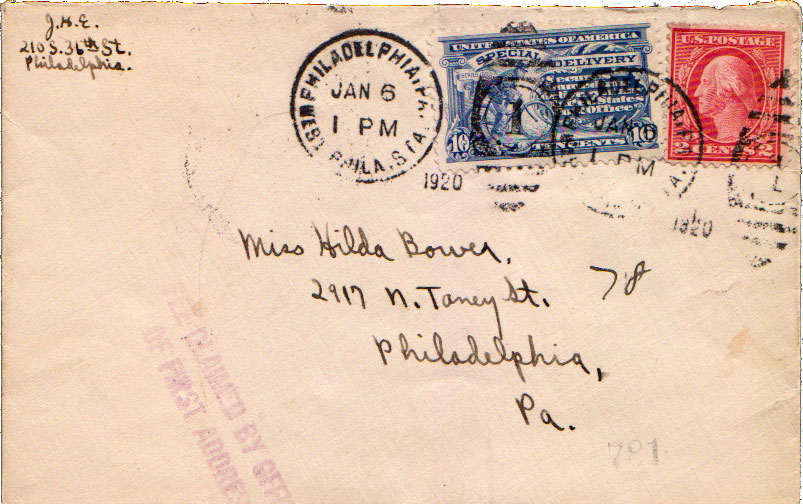 J.H.E.
210 S. 36th St.
Philadelphia.
PHILADELPHIA, PA.
JAN 6
1 PM
WEST PHILA. STA.
1920
UNITED STATES OF AMERICA
SPECIAL DELIVERY
10 TEN CENTS 10
U.S. POSTAGE
2 CENTS 2
1
JAN
1 PM
1920
Miss Hilda Bower,
2917 N. Taney St.
78
Philadelphia,
Pa.
CLAIMED BY OFFI
OF FIRST ADDRES
781